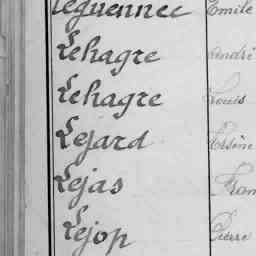 Leguennec Emile
Lehagre André
Lehagre Louis
Lejard Arsène
Lejas Fran
Lejop Pierre